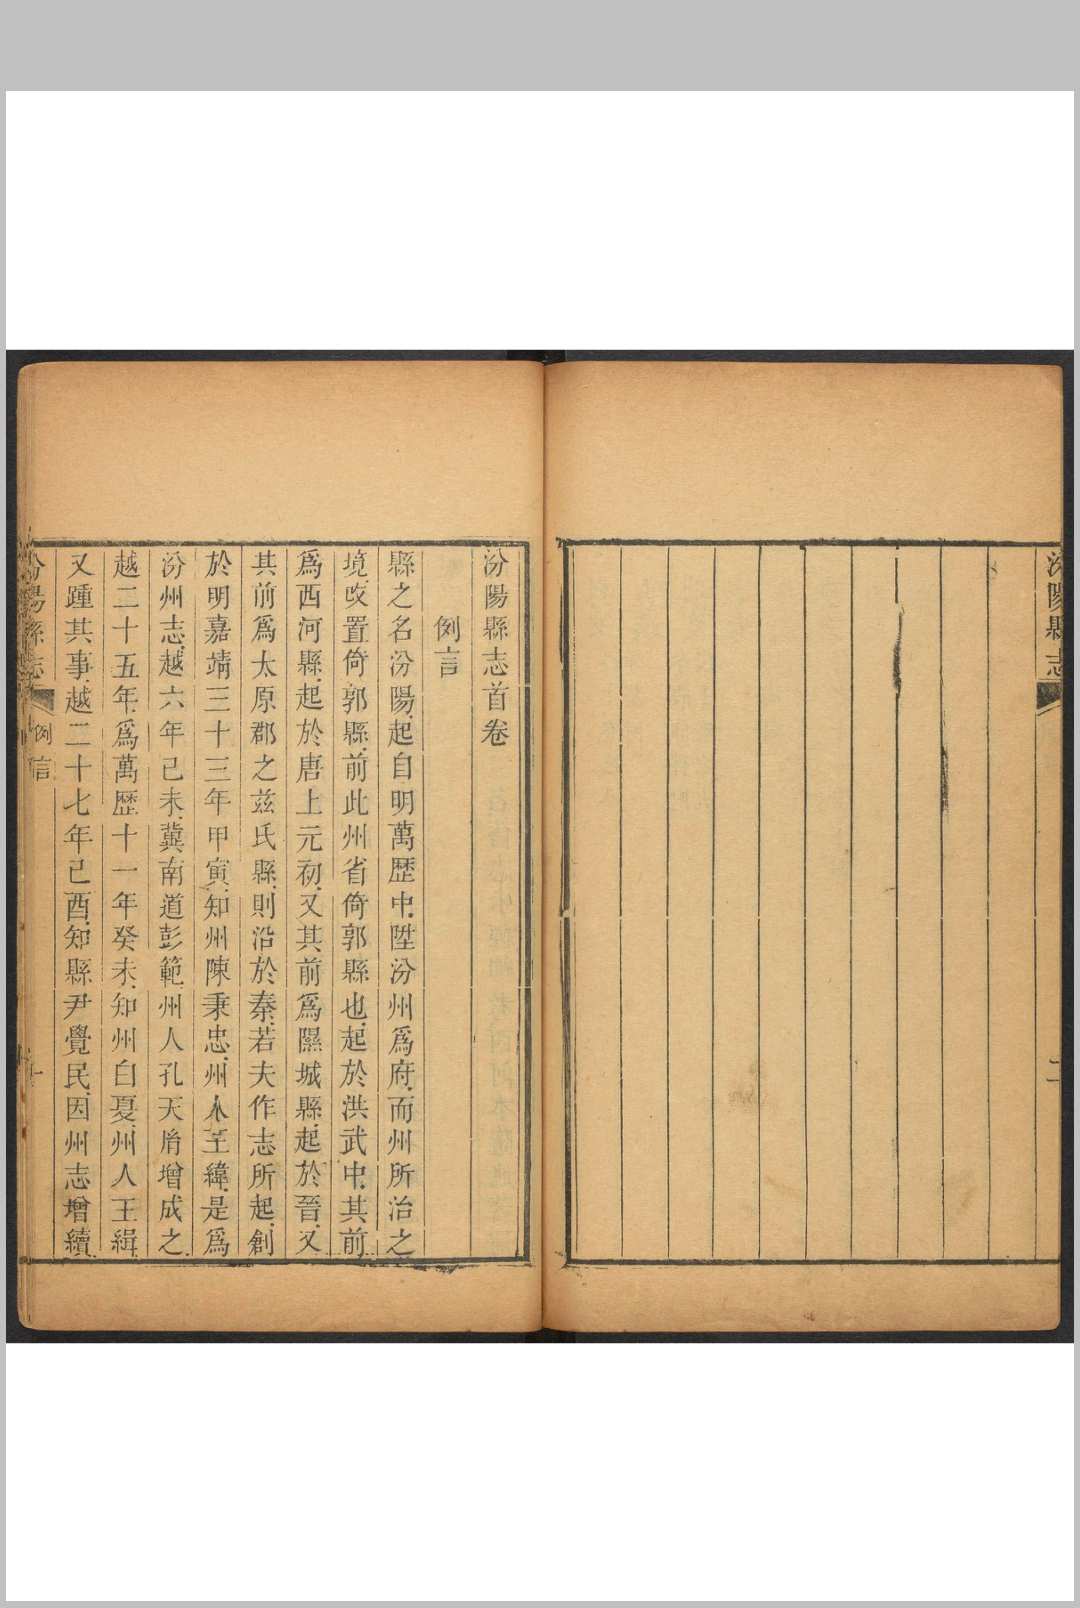 汾陽縣志
二
汾陽縣志首卷
例言
縣之名汾陽起自明萬歴中陞汾州爲府而州所治之
境改置倚郭縣前此州省倚郭縣也起於洪武中其前
爲西河縣起於唐上元初又其前爲隰城縣起於晉又
其前爲太原郡之兹氏縣則沿於秦若夫作志所起創
於明嘉靖三十三年甲寅知州陳秉忠州人王緯是爲
汾州志越六年己未冀南道彭範州人孔天胤增成之
越二十五年爲萬歴十一年癸未知州白夏州人王緝
又踵其事越二十七年己酉知縣尹覺民因州志增續
汾陽縣志
例言
一